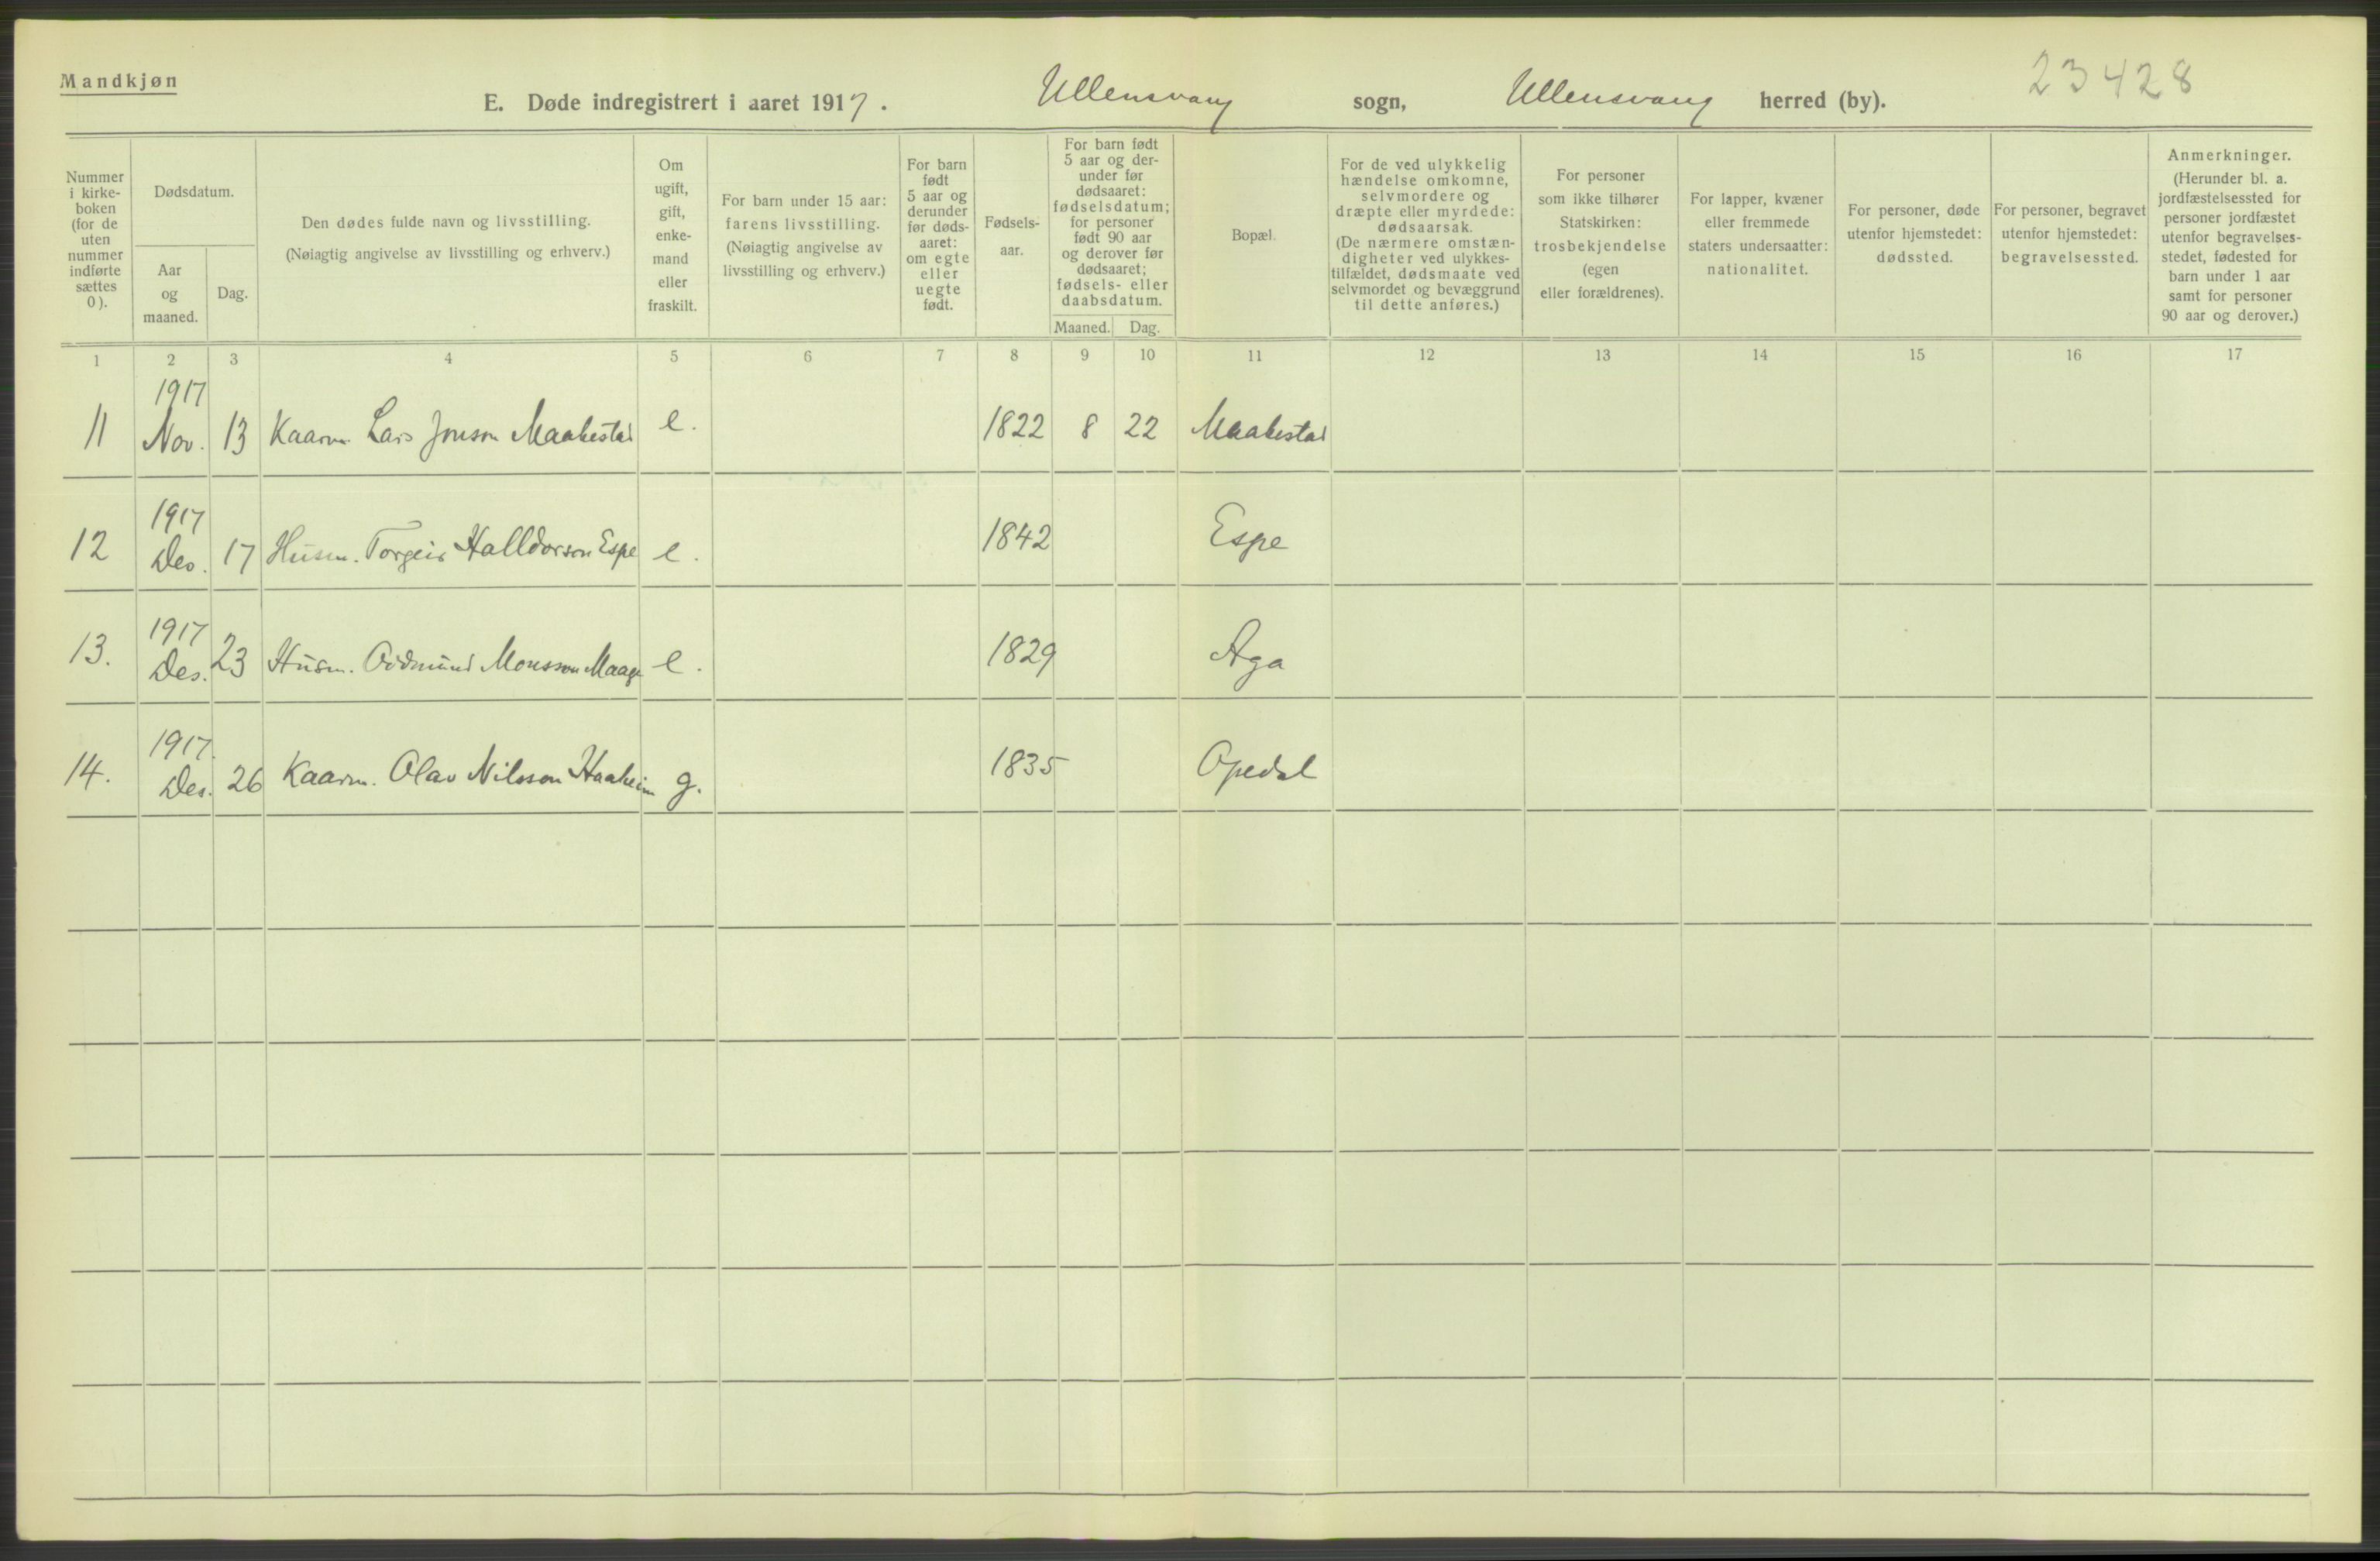 Mandkjøn
E. Døde indregistrert i aaret 1917. Ullensvang sogn, Ullensvang herred (by). 23428
Nummer i kirke-boken (for de uten nummer indførte sættes 0).
Dødsdatum.
Aar og maaned.
Dag.
Den dødes fulde navn og livsstilling.
(Nøiagtig angivelse av livsstilling og erhverv.)
Om ugift, gift, enke-mand eller fraskilt.
For barn under 15 aar: farens livsstilling. (Nøiagtig angivelse av livsstilling og erhverv.)
For barn født 5 aar og derunder før døds-aaret: om egte eller uegte født.
Fødsels-aar.
For barn født 5 aar og der-under før dødsaaret: fødselsdatum; for personer født 90 aar og derover før dødsaaret; fødsels- eller daabsdatum.
Maaned. Dag.
Bopæl.
For de ved ulykkelig hændelse omkomne, selvmordere og dræpte eller myrdede: dødsaarsak. (De nærmere omstæn-digheter ved ulykkes-tilfældet, dødsmaate ved selvmordet og bevæggrund til dette anføres.)
For personer som ikke tilhører Statskirken: trosbekjendelse (egen eller forældrenes).
For lapper, kvæner eller fremmede staters undersaatter: nationalitet.
For personer, døde utenfor hjemstedet: dødssted.
For personer, begravet utenfor hjemstedet: begravelsessted.
Anmerkninger. (Herunder bl. a. jordfæstelsessted for personer jordfæstet utenfor begravelses-stedet, fødested for barn under 1 aar samt for personer 90 aar og derover.)
1 2 3 4 5 6 7 8 9 10 11 12 13 14 15 16 17
11 1917 Nov. 13 Kaarm. Lars Jonson Maakestad e. 1822 8 22 Maakestad
12 1917 Des. 17 Husm. Torgeir Halldorson Espe e. 1842 Espe
13. 1917 Des. 23 Husm. Oddmund Monsson Maage e. 1829 Aga
14. 1917. Des. 26 Kaarm. Olav Nilsson Haaheim g. 1835 Opedal